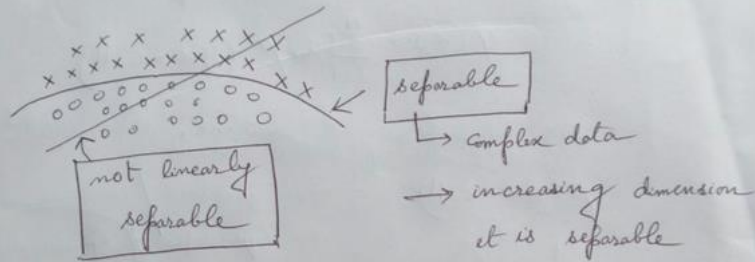 separable
→ complex data
→ increasing dimension
it is separable
not linearly
separable